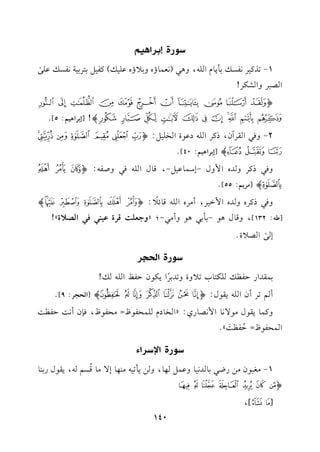 سورة إبراهيم
١- تذكير نفسك بأيام الله، وهي (نعماؤه وبلاؤه عليك) كفيل بتربية نفسك على
الصبر والشكر!
﴿وَلَقَدْ أَرْسَلْنَا مُوسَىٰ بِآيَاتِنَا أَنْ أَخْرِجْ قَوْمَكَ مِنَ الظُّلُمَاتِ إِلَى النُّورِ
وَذَكِّرْهُم بِأَيَّامِ اللَّهِ إِنَّ فِي ذَٰلِكَ لَآيَاتٍ لِّكُلِّ صَبَّارٍ شَكُورٍ﴾! [إبراهيم: ٥].
٢- وفي القرآن، ذكر الله دعوة الخليل: ﴿رَبِّ اجْعَلْنِي مُقِيمَ الصَّلَاةِ وَمِن ذُرِّيَّتِي
رَبَّنَا وَتَقَبَّلْ دُعَاءِ﴾ [إبراهيم: ٤٠].
وفي ذكر ولده الأول -إسماعيل-، قال الله في وصفه: ﴿وَكَانَ يَأْمُرُ أَهْلَهُ
بِالصَّلَاةِ﴾ [مريم: ٥٥].
وفي ذكره ولده الأخير، أمره الله قائلًا: ﴿وَأْمُرْ أَهْلَكَ بِالصَّلَاةِ وَاصْطَبِرْ عَلَيْهَا﴾
[طه: ١٣٢]، وقال هو -بأبي هو وأمي-؛ «وجعلت قرة عيني في الصلاة»!
إلى الصلاة.
سورة الحجر
بمقدار حفظك للكتاب تلاوة وتدبرًا يكون حفظ الله لك!
ألم تر أن الله يقول: ﴿إِنَّا نَحْنُ نَزَّلْنَا الذِّكْرَ وَإِنَّا لَهُ لَحَافِظُونَ﴾ [الحجر: ٩].
وكما يقول مولانا الأنصاري: «الخادم للمحفوظ= محفوظ، فإن أنت حفظت
المحفوظ= حُفظت».
سورة الإسراء
١- مغبون من رضي بالدنيا وعمل لها، ولن يأتيه منها إلا ما قُسم له، يقول ربنا
﴿مَّن كَانَ يُرِيدُ الْعَاجِلَةَ عَجَّلْنَا لَهُ فِيهَا
[مَا نَشَاءُ]،
١٤٠